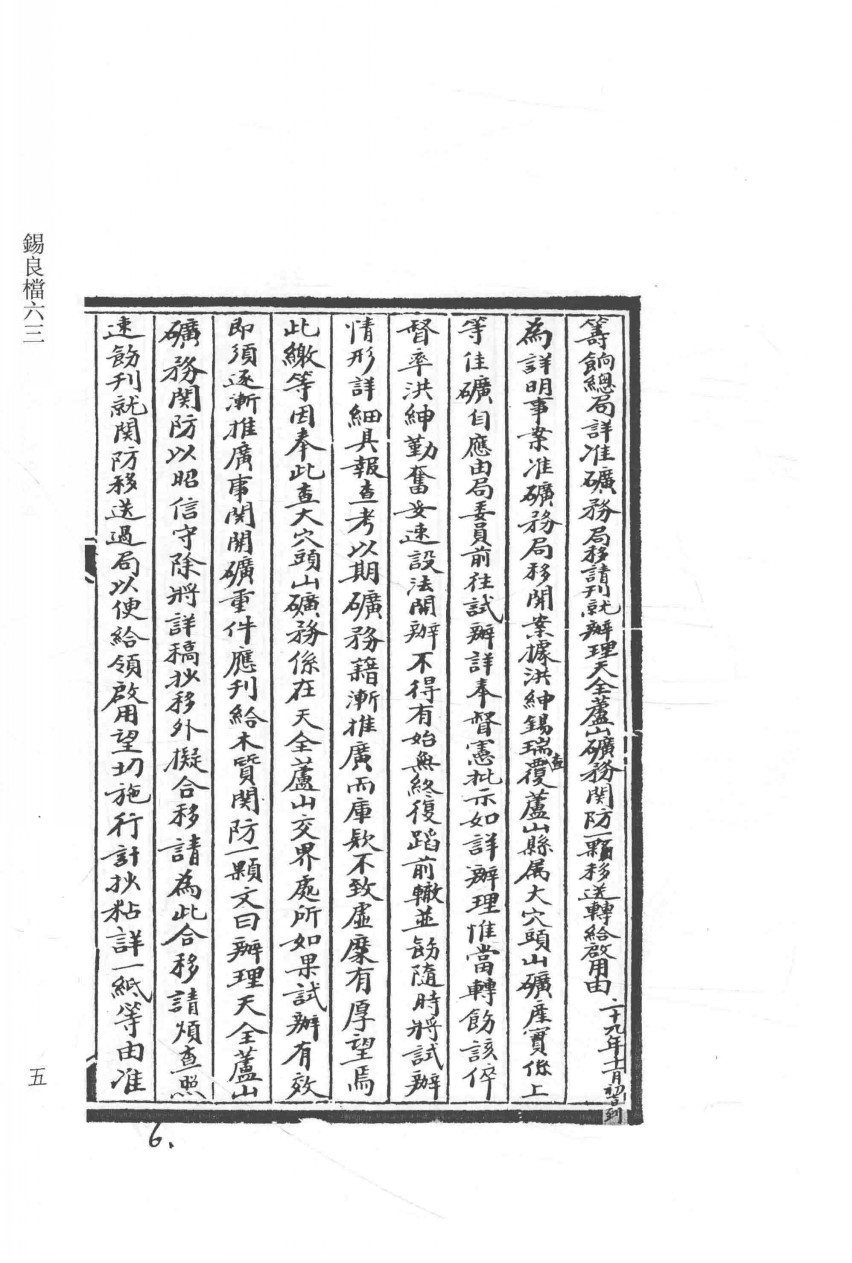 籌餉總局詳准礦務局移請刊就辦理天全蘆山礦務関防一顆移送轉給啟用由 二十九年十二月初一日到
為詳明事案准礦務局移開案據洪紳錫瑞查覆蘆山縣属大穴頭山礦產實係上
等佳礦自應由局委員前往試辦詳奉督憲批示如詳辦理惟當轉飭該倅
督率洪紳勤奮妥速設法開辦不得有始無終復蹈前轍並飭隨時將試辦
情形詳細具報查考以期礦務籍漸推廣而庫欵不致虛糜有厚望焉
此繳等因奉此查大穴頭山礦務係在天全蘆山交界處所如果試辦有效
即須逐漸推廣事関開礦重件應刊給木質関防一顆文曰辦理天全蘆山
礦務関防以昭信守除將詳稿抄移外擬合移請為此合移請煩查照
速飭刊就関防移送過局以便給領啟用望切施行計抄粘詳一紙等由准
錫良檔六三
五
6.